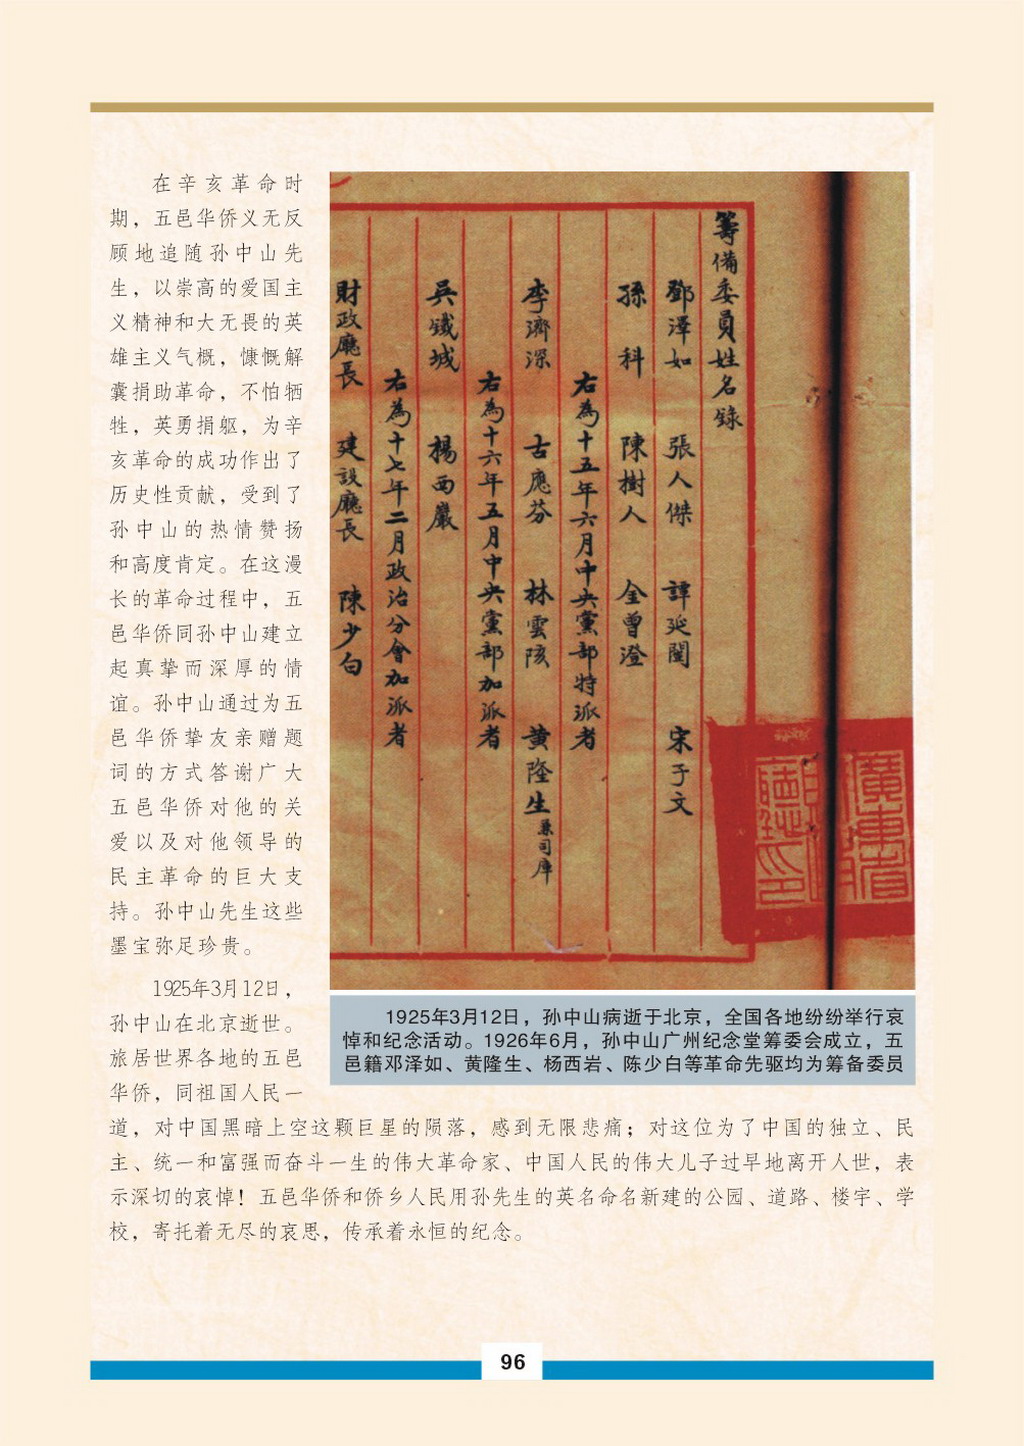 在辛亥革命时
期，五邑华侨义无反
顾地追随孙中山先
生，以崇高的爱国主
义精神和大无畏的英
雄主义气概，慷慨解
囊捐助革命，不怕牺
牲，英勇捐躯，为辛
亥革命的成功作出了
历史性贡献，受到了
孙中山的热情赞扬
和高度肯定。在这漫
长的革命过程中，五
邑华侨同孙中山建立
起真挚而深厚的情
谊。孙中山通过为五
邑华侨挚友亲赠题
词的方式答谢广大
五邑华侨对他的关
爱以及对他领导的
民主革命的巨大支
持。孙中山先生这些
墨宝弥足珍贵。
1925年3月12日，
孙中山在北京逝世。
旅居世界各地的五邑
华侨，同祖国人民一
道，对中国黑暗上空这颗巨星的陨落，感到无限悲痛；对这位为了中国的独立、民
主、统一和富强而奋斗一生的伟大革命家、中国人民的伟大儿子过早地离开人世，表
示深切的哀悼！五邑华侨和侨乡人民用孙先生的英名命名新建的公园、道路、楼宇、学
校，寄托着无尽的哀思，传承着永恒的纪念。
籌備委員姓名錄
鄧澤如 張人傑 譚延闓 宋子文
孫科 陳樹人 金曾澄
右為十五年六月中央黨部特派者
李濟深 古應芬 林雲陔 黃隆生兼司庫
右為十六年五月中央黨部加派者
吳鐵城 楊西巖
右為十七年二月政治分會加派者
財政廳長 建設廳長 陳少白
1925年3月12日，孙中山病逝于北京，全国各地纷纷举行哀
悼和纪念活动。1926年6月，孙中山广州纪念堂筹委会成立，五
邑籍邓泽如、黄隆生、杨西岩、陈少白等革命先驱均为筹备委员
96